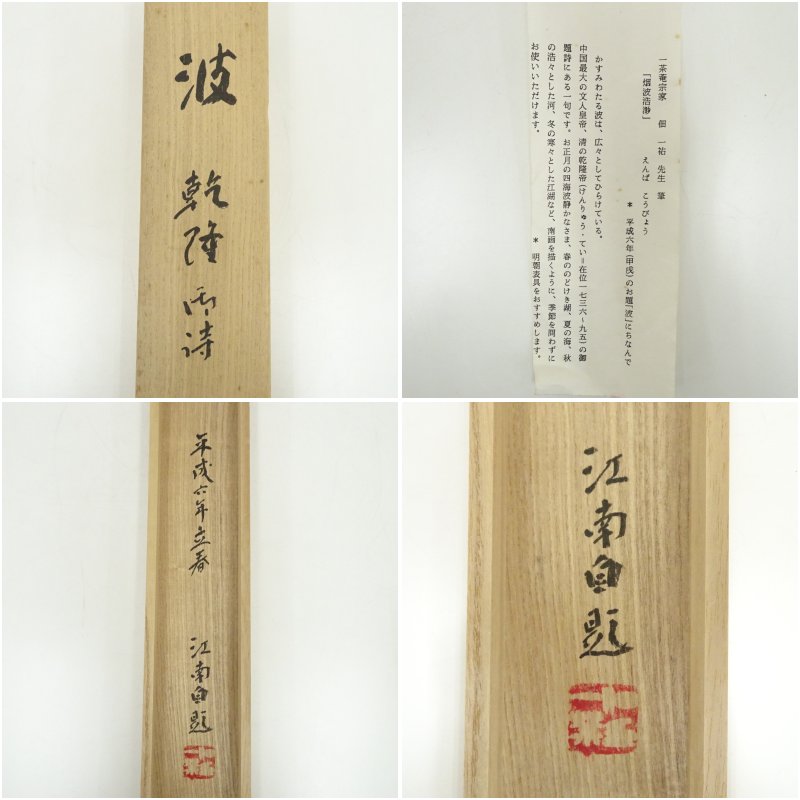 波
乾隆御詩
一茶菴宗家 佃 一祐 先生 筆
「烟波浩渺」 えんぱ こうびょう
＊ 平成六年(甲戌)のお題「波」にちなんで
かすみわたる波は、広々としてひらけている。
中国最大の文人皇帝、清の乾隆帝(けんりゅう・てい＝在位一七三六～九五)の御
題詩にある一句です。お正月の四海波静かなさま、春ののどけき湖、夏の海、秋
の浩々とした河、冬の寒々とした江湖など、南画を描くように、季節を問わずに
お使いいただけます。
＊ 明朝表具をおすすめします。
平成六年立春
江南自題
江南自題